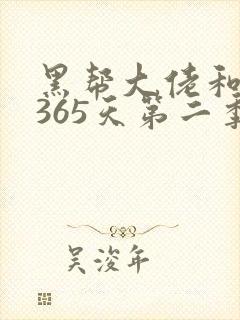 黑帮大佬和
365天第二季
吴浚年